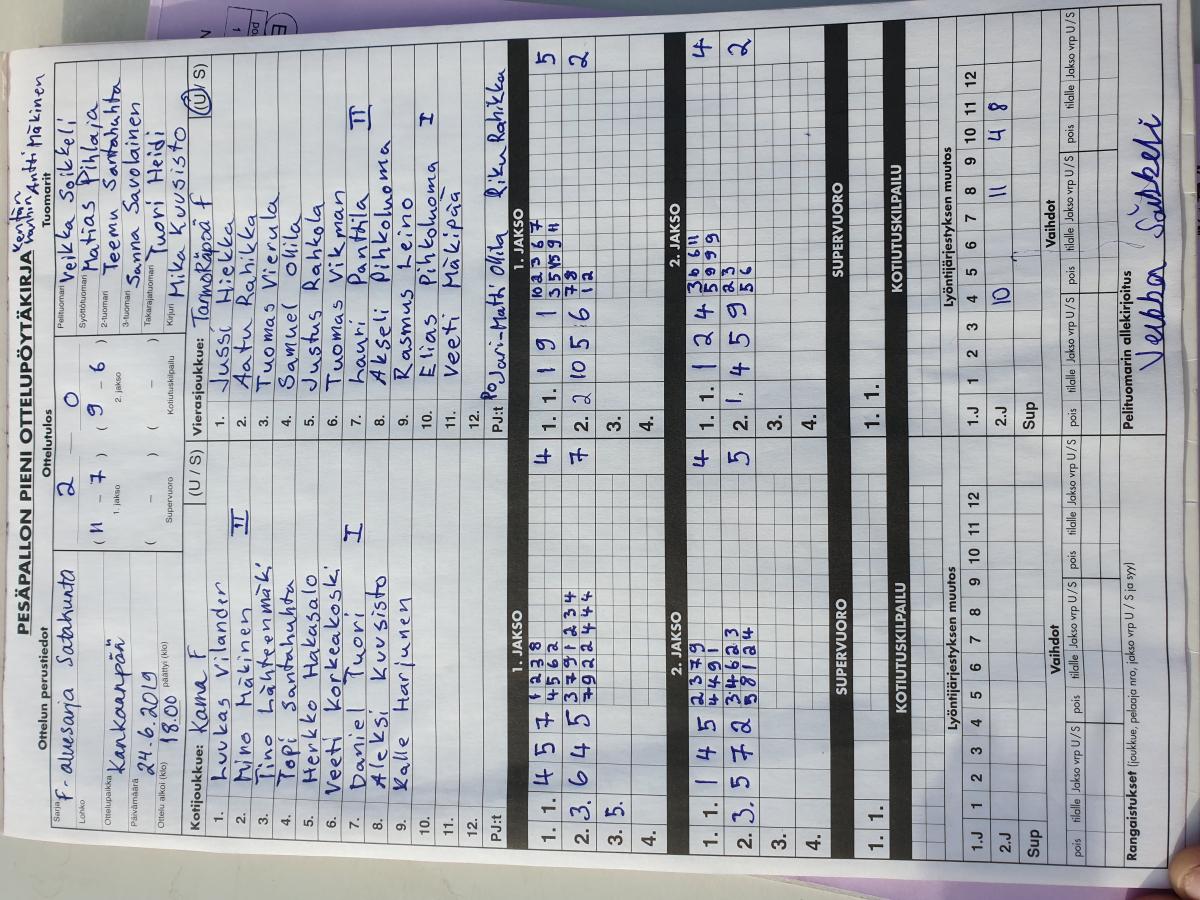 PESÄPALLON PIENI OTTELUPÖYTÄKIRJA
Kentän
Antti Mäkinen
Ottelun perustiedot
Sarja F-aluesarja Satakunta
Lohko
Ottelupaikka Kankaanpää
Päivämäärä 24.6.2019
Ottelu alkoi (klo) 18.00 päättyi (klo)
Ottelutulos
2 – 0
( 11 – 7 ) ( 9 – 6 )
1. jakso 2. jakso
( – ) ( – )
Supervuoro Kotiutuskilpailu
Tuomarit
Pelituomari Veikka Soikkeli
Syöttötuomari Matias Pihlaja
2-tuomari Teemu Santahuhta
3-tuomari Sanna Savolainen
Takarajatuomari Tuori Heidi
Kirjuri Mika Kuusisto
Kotijoukkue: Kama F (U / S)
1. Luukas Vilander
2. Mino Mäkinen II
3. Tino Lähteenmäki
4. Topi Santahuhta
5. Herkko Hakasalo
6. Veeti Korkeakoski
7. Daniel Tuori I
8. Aleksi Kuusisto
9. Kalle Harjunen
10.
11.
12.
PJ:t
Vierasjoukkue: TarmoRäpä F (U / S)
1. Jussi Hiekka
2. Aatu Rahikka
3. Tuomas Vierula
4. Samuel Ollila
5. Justus Rahkola
6. Tuomas Vikman
7. Lauri Panttila II
8. Akseli Pihkoluoma
9. Rasmus Leino
10. Elias Pihkoluoma I
11. Veeti Mäkipää
12.
PJ:t Po Jari-Matti Ollila Riku Rahikka
1. JAKSO
1. 1. 4 5 7 1 2 3 8 4
4 5 6 2
2. 3. 6 4 5 3 7 9 1 2 3 4 7
7 9 2 2 4 4 4
3. 5.
4.
1. JAKSO
1. 1. 1 9 1 10 2 3 6 7 5
3 5 15 9 11
2. 2 10 5 6 7 8 2
1 2
3.
4.
2. JAKSO
1. 1. 1 4 5 2 3 7 9 4
4 4 9 1
2. 3. 5 7 2 3 4 6 2 3 5
5 8 1 2 4
3.
4.
2. JAKSO
1. 1. 1 2 4 3 3 6 11 4
5 9 9 9
2. 1. 4 5 9 2 3 2
5 6
3.
4.
SUPERVUORO
1. 1.
SUPERVUORO
1. 1.
KOTIUTUSKILPAILU
KOTIUTUSKILPAILU
Lyöntijärjestyksen muutos
1.J 1 2 3 4 5 6 7 8 9 10 11 12
2.J
Sup
Lyöntijärjestyksen muutos
1.J 1 2 3 4 5 6 7 8 9 10 11 12
2.J 10 11 4 8
Sup
Vaihdot
pois tilalle Jakso vrp U / S pois tilalle Jakso vrp U / S pois tilalle Jakso vrp U / S
Vaihdot
pois tilalle Jakso vrp U / S pois tilalle Jakso vrp U / S pois tilalle Jakso vrp U / S
Rangaistukset (joukkue, pelaaja nro, jakso vrp U / S ja syy)
Pelituomarin allekirjoitus
Veikka Soikkeli